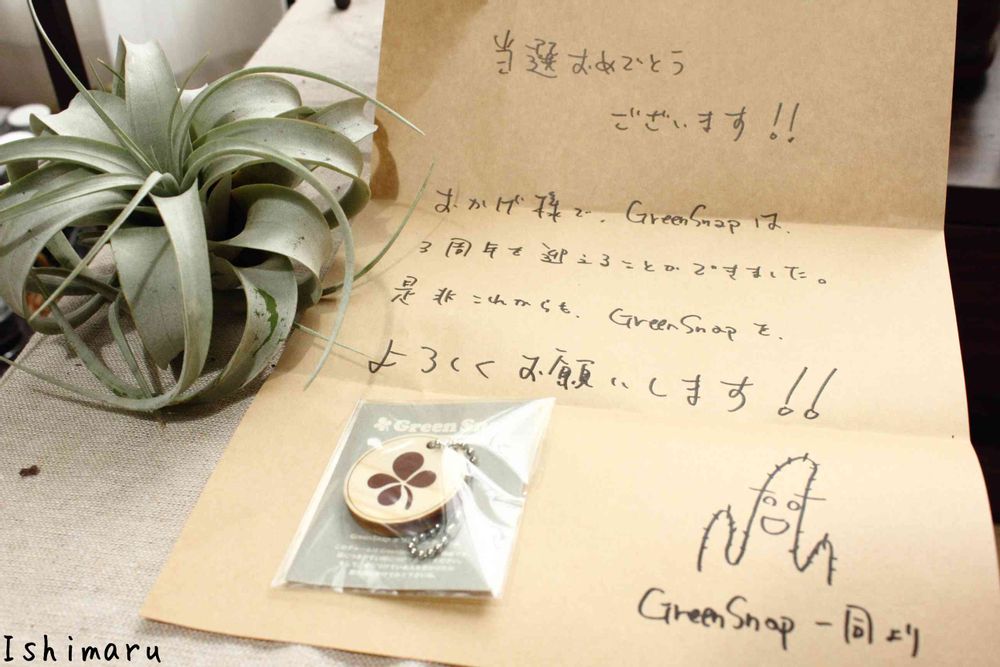 当選おめでとう
ございます!!
おかげ様で、GreenSnapは、
3周年を迎えることができました。
是非これからも、GreenSnapを、
よろしくお願いします!!
Green
GreenSnap一同より
Ishimaru